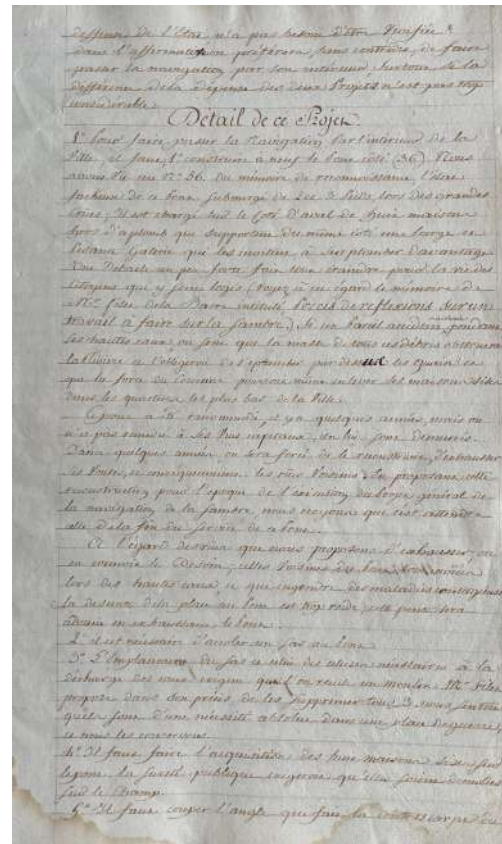 deffense De l'Etat n'a pas besoin d'être Verifiée &
dans l'affirmative on préferera, sans contredit, de faire
passer la navigation par son interieur, surtout si la
différence de la dépense des deux Projets n'est pas trop
considerable.
Détail de ce Projet
1° Pour faire passer la Navigation Par l'interieur de la
Ville, il faut, 1° construire à neuf le Pont coté (36). Nous
avons Vu au N° 36. du mémoire de reconnaissance, l'état
facheux de ce Pont submergé de 2 à 3 Pieds, lors des grandes
Crues; il est chargé sur le Coté d'aval de huit maisons
hors d'aplomb que supporte du même coté une large et
Pesante Galerie que les invitent à surplomber davantage
un peu forte fait tout craindre pour la vie des
Citoyens qui y sont logés (voyez à cet égard le mémoire de
Mr. de la Barre intitulé Précis de reflexions sur un
travail à faire sur la Sambre.) Si un Pareil accident pendant
les hautes eaux, où font que la masse de tous ces débris obstruerait
la Riviere et l'obligeroit de les quais et
que la force du Courant pourroit même enlever les maisons sises
dans les quartiers les plus bas de la Ville.
Ce pont a été racommodé, il y a quelques années, mais on
n'a pas remedié à ses Vices capitaux,
Dans quelques années on sera forcé de le reconstruire, d'exhausser
ses Voutes, et consequemment les rües Voisines. En proposant cette
reconstruction pour l'epoque de l'execution du Projet général de
la navigation de la Sambre, nous croyons que c'est attendre
celle de la fin du service de ce Pont.
A l'égard des rües que nous proposons d'exhausser, on
en connoit le Besoin; celles Voisines du Pont
lors des hautes eaux, ce que engendre des maladies contagieuses
la descente de la place au Pont est trop roide, cette pente sera
adoucie en exhaussant le Pont.
2° il est nécessaire d'accoler un Sas au Pont
3° L'Emplacement du Sas et celui des écluses necessaires à la
décharge des eaux exigent un moulin. Mr.
propose dans son précis de les supprimer tous 3.
qu'ils sont d'une nécessité absolue dans une place de guerre,
et nous les conservons.
4° Il faut faire l'acquisition des huit maisons sises sur
le pont. La sureté publique exigeroit qu'elles soient démolies
sur le champ.
5° Il faut couper l'angle que fait la contrescarpe du